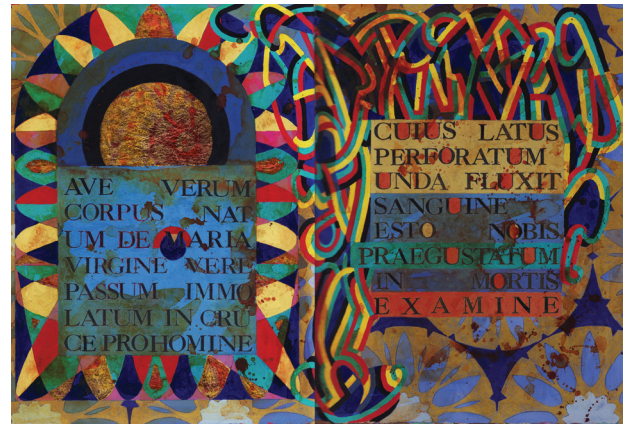 AVE VERUM
CORPUS NAT
UM DE MARIA
VIRGINE VERE
PASSUM IMMO
LATUM IN CRU
CE PRO HOMINE
CUIUS LATUS
PERFORATUM
UNDA FLUXIT
SANGUINE
ESTO NOBIS
PRAEGUSTATUM
IN MORTIS
EXAMINE